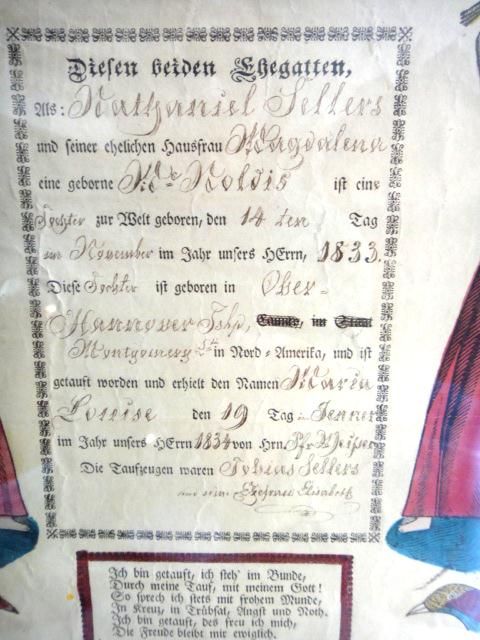 Diesen beiden Ehegatten,
Als: Nathaniel Sellers
und seiner ehelichen Hausfrau Magdalena
eine geborne Mc Noldis ist eine
Tochter zur Welt geboren, den 14 ten Tag
November im Jahr unsers HErrn, 1833.
Diese Tochter ist geboren in Ober-
Hannover Tshp, County, im Staat
Montgomery Ct in Nord-Amerika, und ist
getauft worden und erhielt den Namen Maria
Louise den 19 Tag Jenner
im Jahr unsers HErrn 1834 von Hrn. Pfr
Die Taufzeugen waren Tobias Sellers
und seine Ehefrau Elisabeth
Ich bin getauft, ich steh' im Bunde,
Durch meine Tauf, mit meinem Gott!
So sprech ich stets mit frohem Munde,
In Kreuz, in Trübsal, Angst und Noth.
Ich bin getauft, des freu ich mich,
Die Freude bleibt mir ewiglich.